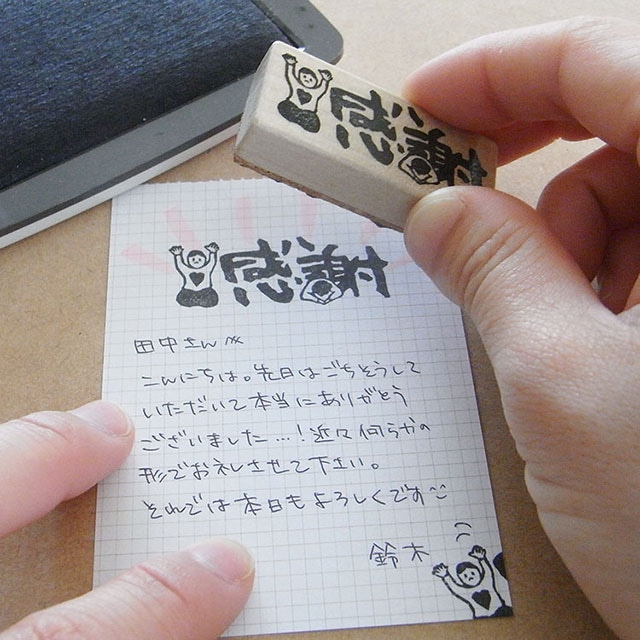 田中さんへ
こんにちは。先日はごちそうして
いただいて本当にありがとう
ございました…!近々何らかの
形でお礼させて下さい。
それでは本日もよろしくです
鈴木